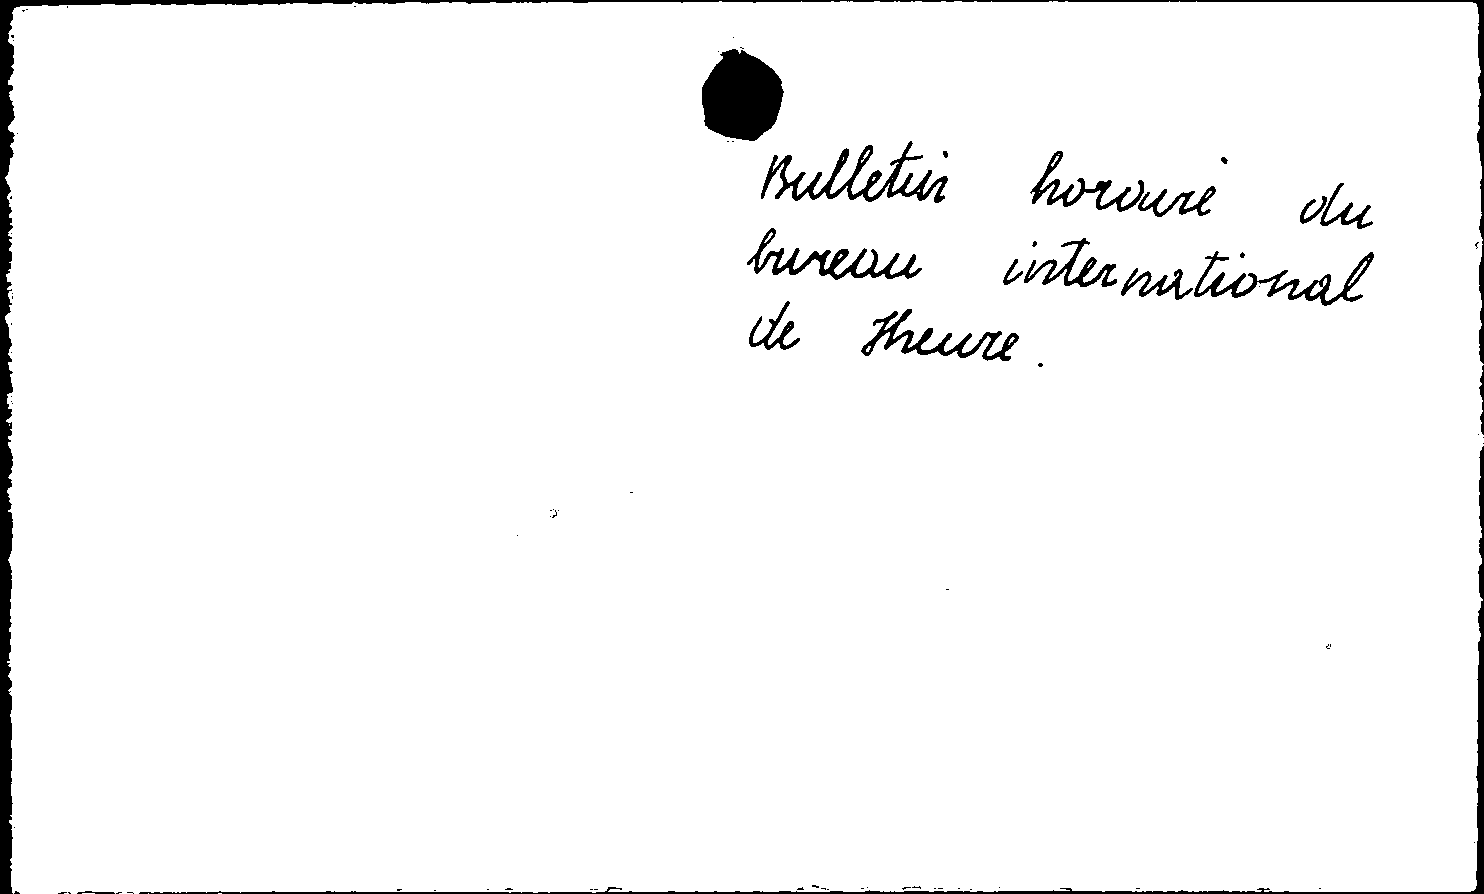 Bulletin horaire du
bureau international
de Jheure.